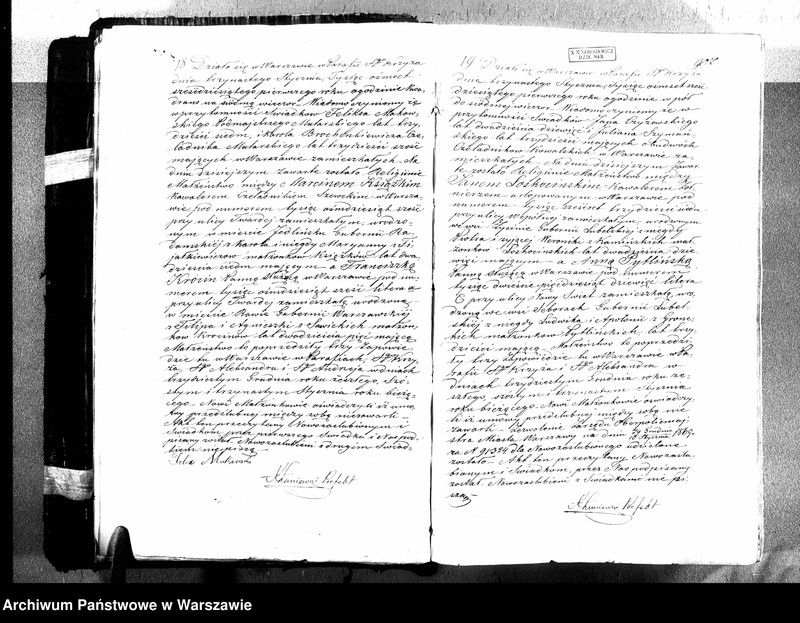 18 Działo się w Warszawie w Parafii Sgo Krzyża
dnia trzynastego Stycznia, Tysiąc ośmset
sześćdziesiątego pierwszego roku o godzinie kwa-
drans na siódmą wieczór. Wiadomo czynimy iż
w przytomności Świadków Feliksa Makow-
skiego Podmajstrzego Mularskiego lat trzy-
dzieści siedm, i Karola Cze-
ladnika Mularskiego lat trzydzieści sześć
mających w Warszawie zamieszkałych. Na
dniu dzisiejszym zawarte zostało Religijne
Małżeństwo między Marcinem Książkim
Kawalerem Czeladnikiem Szewckim w Warsza-
wie pod numerem tysiąc ośmdziesiąt sześć
przy ulicy Twardej zamieszkałym, urodzo-
nym w mieście Jedlińsku Gubernii Ra-
domskiej z Karola i niegdy Maryanny z
małżonków Książków lat dwa-
dzieścia siedm mającym - a Franciszką
Krocin Panną służącą w Warszawie pod nu-
merem tysiąc ośmdziesiąt sześć litera
przy ulicy Twardej zamieszkałą, urodzoną
w mieście Rawie Gubernii Warszawskiej
z Filipa i Agnieszki z Sawickich małżon-
ków Krocinów lat dwadzieścia pięć mającą
Małżeństwo to poprzedziły trzy zapowie-
dzie tu w Warszawie w Parafiach, Sgo Krzy-
ża, Sgo Aleksandra i Sgo Andrzeja w dniach
trzydziestym Grudnia roku zeszłego, szó-
stym i trzynastym Stycznia roku bieżą-
cego - Nowi Małżonkowie oświadczyli iż umo-
wy przedślubnej między sobą niezawarli -
Akt ten przeczytany Nowozaślubionym i
Świadkom, przez pierwszego Świadka i Nas pod-
pisany został, Nowozaślubieni i drugi Świad-
nie piszą
Felix Makowski
Prefekt
19 Działo się w Warszawie w Parafii Sgo Krzyża
dnia trzynastego Stycznia, tysiąc ośmset sześć-
dziesiątego pierwszego roku o godzinie w pół
do siódmej wieczór. Wiadomo czynimy że w
przytomności Świadków Jana Czyżewskiego
lat dwadzieścia dziewięć i Juliana Szymań-
skiego lat trzydzieści mających obudwóch
Czeladników Kowalskich, w Warszawie za-
mieszkałych - Na dniu dzisiejszym zawar-
te zostało Religijne Małżeństwo między
Janem Kawalerem Żoł-
nierzem urlopowanym w Warszawie pod
numerem tysiąc sześćset trzydzieści siedm
przy ulicy Wspólnej zamieszkałym, urodzonym
we wsi Żyśinie Gubernii Lubelskiej z niegdy
Piotra i żyjącej Weroniki z Kamińskich mał-
żonków lat dwadzieścia dzie-
więć mającym - a Anną Pytlińską
Panną służącą w Warszawie pod numerem
tysiąc dwieście pięćdziesiąt dziewięć litera
C przy ulicy Nowy Świat zamieszkałą, uro-
dzoną we wsi Seborach Gubernii Lubel-
skiej z niegdy Ludwika i Apolonii z
małżonków Pytlińskich, lat trzy-
dzieści mającą - Małżeństwo to poprzedzi-
ły trzy zapowiedzie tu w Warszawie w Pa-
rafii Sgo Krzyża i Sgo Aleksandra w
dniach trzydziestym Grudnia roku ze-
szłego, szóstym i trzynastym Stycznia
roku bieżącego - Nowi Małżonkowie oświadczy-
li iż umowy przedślubnej między sobą nie
zawarli - zezwolenie Urzędu Oberpolicmaj-
stra Miasta Warszawy na dniu 29 Grudnia/10 Stycznia 1860/1
za N 91324 dla Nowozaślubionego udzielone
zostało - Akt ten przeczytany Nowozaślu-
bionym i Świadkom, przez Nas podpisany
został. Nowozaślubieni i Świadkowie nie pi-
szą.
Prefekt
Archiwum Państwowe w Warszawie